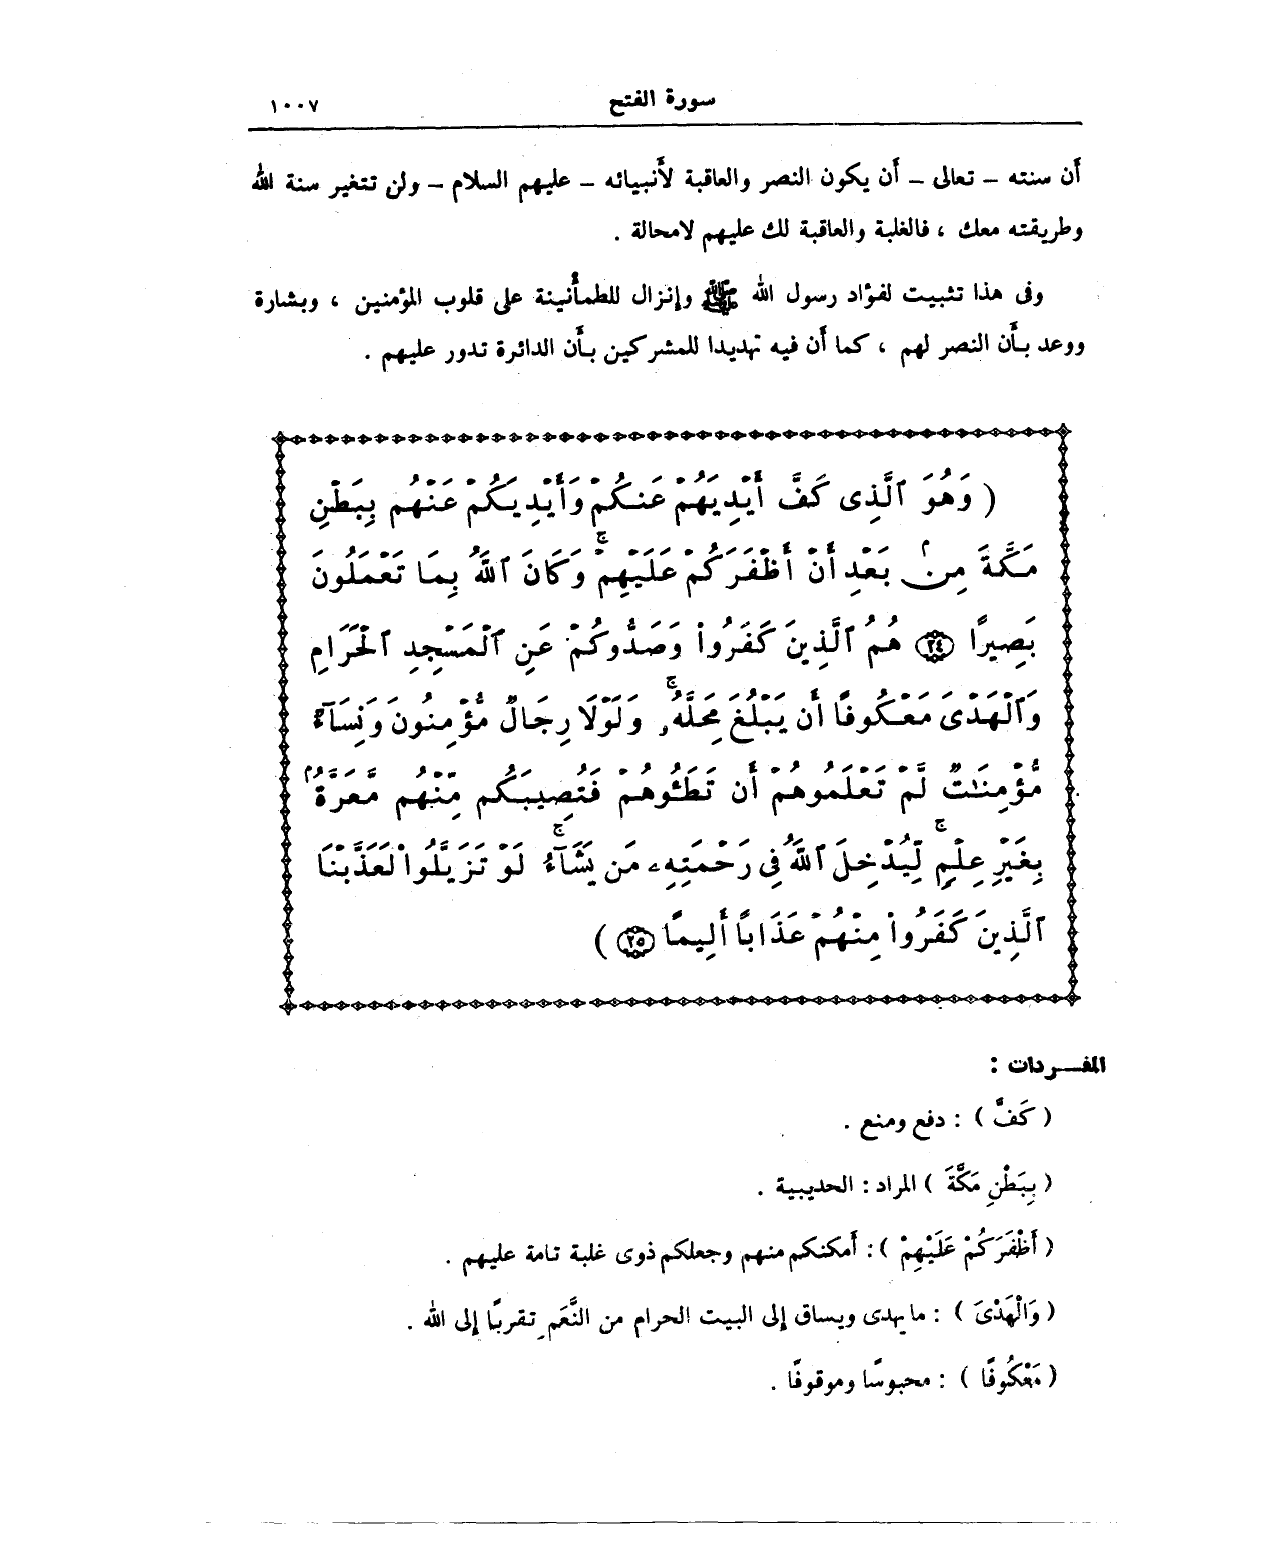 سورة الفتح ١٠٠٧
أن سنته – تعالى – أن يكون النصر والعاقبة لأنبيائه – عليهم السلام – ولن تتغير سنة الله
وطريقته معك ، فالغلبة والعاقبة لك عليهم لامحالة .
وفى هذا تثبيت لفؤاد رسول الله ﷺ وإنزال للطمأنينة على قلوب المؤمنين ، وبشارة
ووعد بأن النصر لهم ، كما أن فيه تهديدا للمشركين بأن الدائرة تدور عليهم .
( وَهُوَ ٱلَّذِى كَفَّ أَيْدِيَهُمْ عَنكُمْ وَأَيْدِيَكُمْ عَنْهُم بِبَطْنِ
مَكَّةَ مِنۢ بَعْدِ أَنْ أَظْفَرَكُمْ عَلَيْهِمْ ۚ وَكَانَ ٱللَّهُ بِمَا تَعْمَلُونَ
بَصِيرًا ٢٤ هُمُ ٱلَّذِينَ كَفَرُوا۟ وَصَدُّوكُمْ عَنِ ٱلْمَسْجِدِ ٱلْحَرَامِ
وَٱلْهَدْىَ مَعْكُوفًا أَن يَبْلُغَ مَحِلَّهُۥ ۚ وَلَوْلَا رِجَالٌ مُّؤْمِنُونَ وَنِسَآءٌ
مُّؤْمِنَـٰتٌ لَّمْ تَعْلَمُوهُمْ أَن تَطَـُٔوهُمْ فَتُصِيبَكُم مِّنْهُم مَّعَرَّةٌۢ
بِغَيْرِ عِلْمٍ ۖ لِّيُدْخِلَ ٱللَّهُ فِى رَحْمَتِهِۦ مَن يَشَآءُ ۚ لَوْ تَزَيَّلُوا۟ لَعَذَّبْنَا
ٱلَّذِينَ كَفَرُوا۟ مِنْهُمْ عَذَابًا أَلِيمًا ٢٥ )
المفــردات :
( كَفَّ ) : دفع ومنع .
( بِبَطْنِ مَكَّةَ ) المراد : الحديبية .
( أَظْفَرَكُمْ عَلَيْهِمْ ) : أمكنكم منهم وجعلكم ذوى غلبة تامة عليهم .
( وَالْهَدْىَ ) : مايهدى ويساق إلى البيت الحرام من النَّعَمِ تقربًا إلى الله .
( مَعْكُوفًا ) : محبوسًا وموقوفًا .